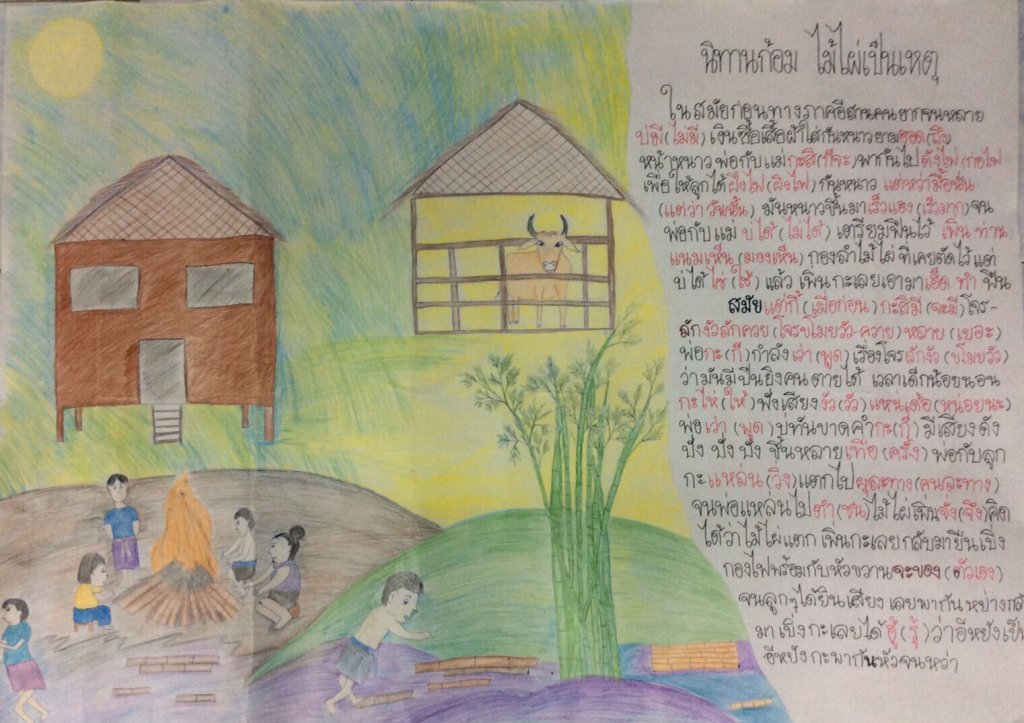 นิทานก้อม ไม้ไผ่เป็นเหตุ
ในสมัยก่อนทางภาคอีสานคนยากจนหลาย
บ่มี(ไม่มี) เงินซื้อเสื้อผ้าใส่กันหนาวยามฮอด(ถึง)
หน้าหนาว พ่อกับแม่กะสิ(ก็จะ)พากันไปดังไฟ(ก่อไฟ)
เพื่อให้ลูกได้ฝิงไฟ(ผิงไฟ)กันหนาว แต่หว่ามื้อนั้น
(แต่ว่าวันนั้น) มันหนาวขึ้นมาเร็วแฮง(เร็วมาก)จน
พ่อกับแม่ บ่ได้(ไม่ได้) เตรียมฟืนไว้ เพิ่น ท่าน
แนมเห็น(มองเห็น) กองลำไม้ไผ่ ที่เคยตัดไว้แต่
บ่ได้ไซ้(ใช้) แล้ว เพิ่นกะเลยเอามาเฮ็ด ทำ ฟืน
สมัยแต่กี้(เมื่อก่อน)กะสิมี(จะมี)โจร-
ลักงัวลักควย(โจรขโมยวัว-ควาย) หลาย(เยอะ)
พ่อกะ(ก็)กำลังเว่า(พูด)เรื่องโจรลักงัว(ขโมยวัว)
ว่ามันมีปืนยิงคนตายได้ เวลาเด็กน้อยนอน
กะไห่(ให้)ฟังเสียงงัว(วัว)แหน่เด้อ(หน่อยนะ)
พ่อเว่า(พูด)บ่ทันขาดคำกะ(ก็)มีเสียงดัง
ปัง ปัง ปัง ขึ้นหลายเทือ(ครั้ง)พ่อกับลูก
กะแหล่น(วิ่ง)แตกไปผุละทาง(คนละทาง)
จนพ่อแหล่นไปตำ(ชน)ไม้ไผ่เพิ่นจั่ง(จึง)คิด
ได้ว่าไม้ไผ่แตก เพิ่นกะเลยกลับมายืนเบิ่ง
กองไฟพร้อมกับหัวขวานจะของ(ตัวเอง)
จนลูกๆได้ยินเสียง เลยพากันหย่าง
มาเบิ่งกะเลยได้ฮู้(รู้)ว่าอีหยัง
อีหยังกะพากันหัวจนหว่า